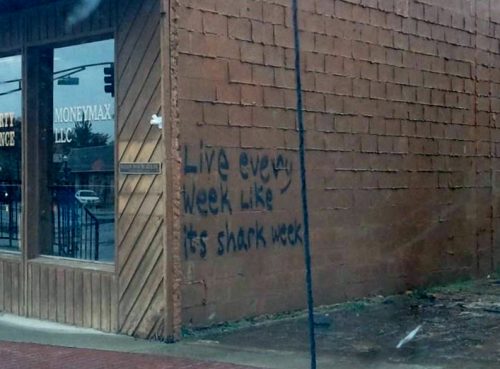 RTY
NCE
MONEYMAX
LLC
Live every
Week Like
its shark week